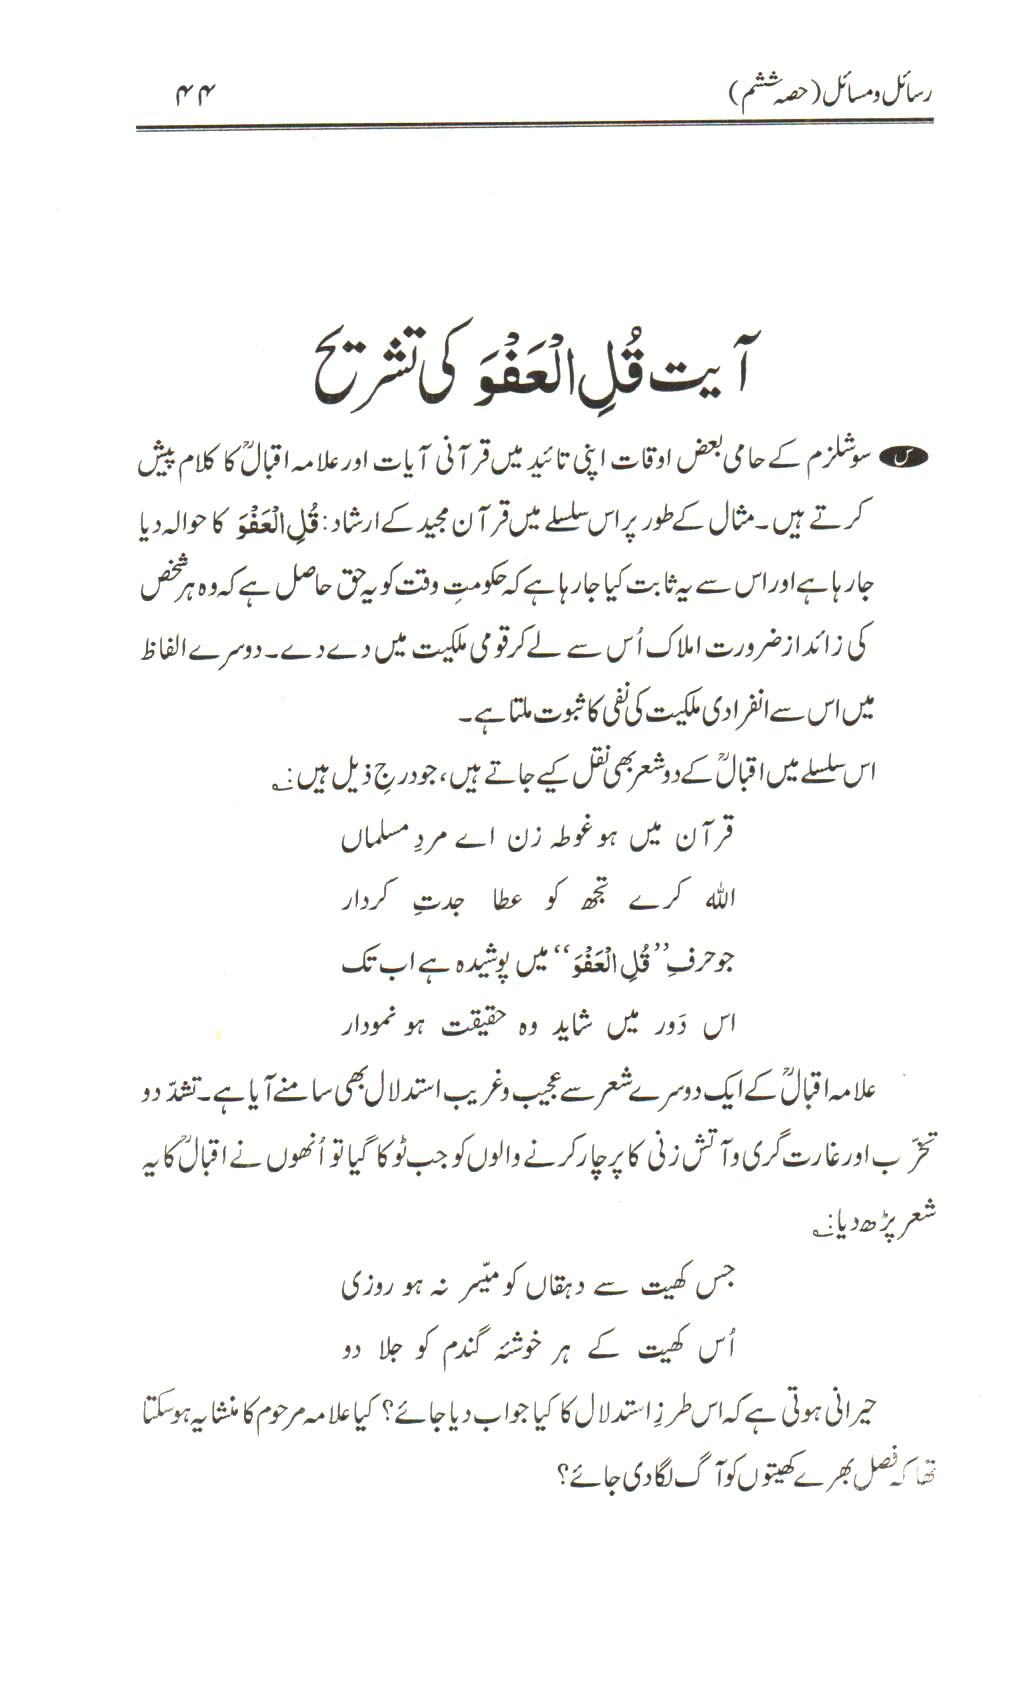 رسائل و مسائل (حصہ ششم)
۴۴
آیت قُلِ الْعَفْوَ کی تشریح
س سوشلزم کے حامی بعض اوقات اپنی تائید میں قرآنی آیات اور علامہ اقبالؒ کا کلام پیش
کرتے ہیں۔ مثال کے طور پر اس سلسلے میں قرآن مجید کے ارشاد: قُلِ الْعَفْوَ کا حوالہ دیا
جا رہا ہے اور اس سے یہ ثابت کیا جا رہا ہے کہ حکومتِ وقت کو یہ حق حاصل ہے کہ وہ ہر شخص
کی زائد از ضرورت املاک اُس سے لے کر قومی ملکیت میں دے دے۔ دوسرے الفاظ
میں اس سے انفرادی ملکیت کی نفی کا ثبوت ملتا ہے۔
اس سلسلے میں اقبالؒ کے دو شعر بھی نقل کیے جاتے ہیں، جو درجِ ذیل ہیں:؎
قرآن میں ہو غوطہ زن اے مردِ مسلماں
اللہ کرے تجھ کو عطا جدتِ کردار
جو حرفِ ”قُلِ الْعَفْوَ“ میں پوشیدہ ہے اب تک
اس دَور میں شاید وہ حقیقت ہو نمودار
علامہ اقبالؒ کے ایک دوسرے شعر سے عجیب و غریب استدلال بھی سامنے آیا ہے۔ تشدّد و
تخرّب اور غارت گری و آتش زنی کا پرچار کرنے والوں کو جب ٹوکا گیا تو اُنھوں نے اقبالؒ کا یہ
شعر پڑھ دیا:؎
جس کھیت سے دہقاں کو میّسر نہ ہو روزی
اُس کھیت کے ہر خوشۂ گندم کو جلا دو
حیرانی ہوتی ہے کہ اس طرزِ استدلال کا کیا جواب دیا جائے؟ کیا علامہ مرحوم کا منشا یہ ہو سکتا
تھا کہ فصل بھرے کھیتوں کو آگ لگا دی جائے؟